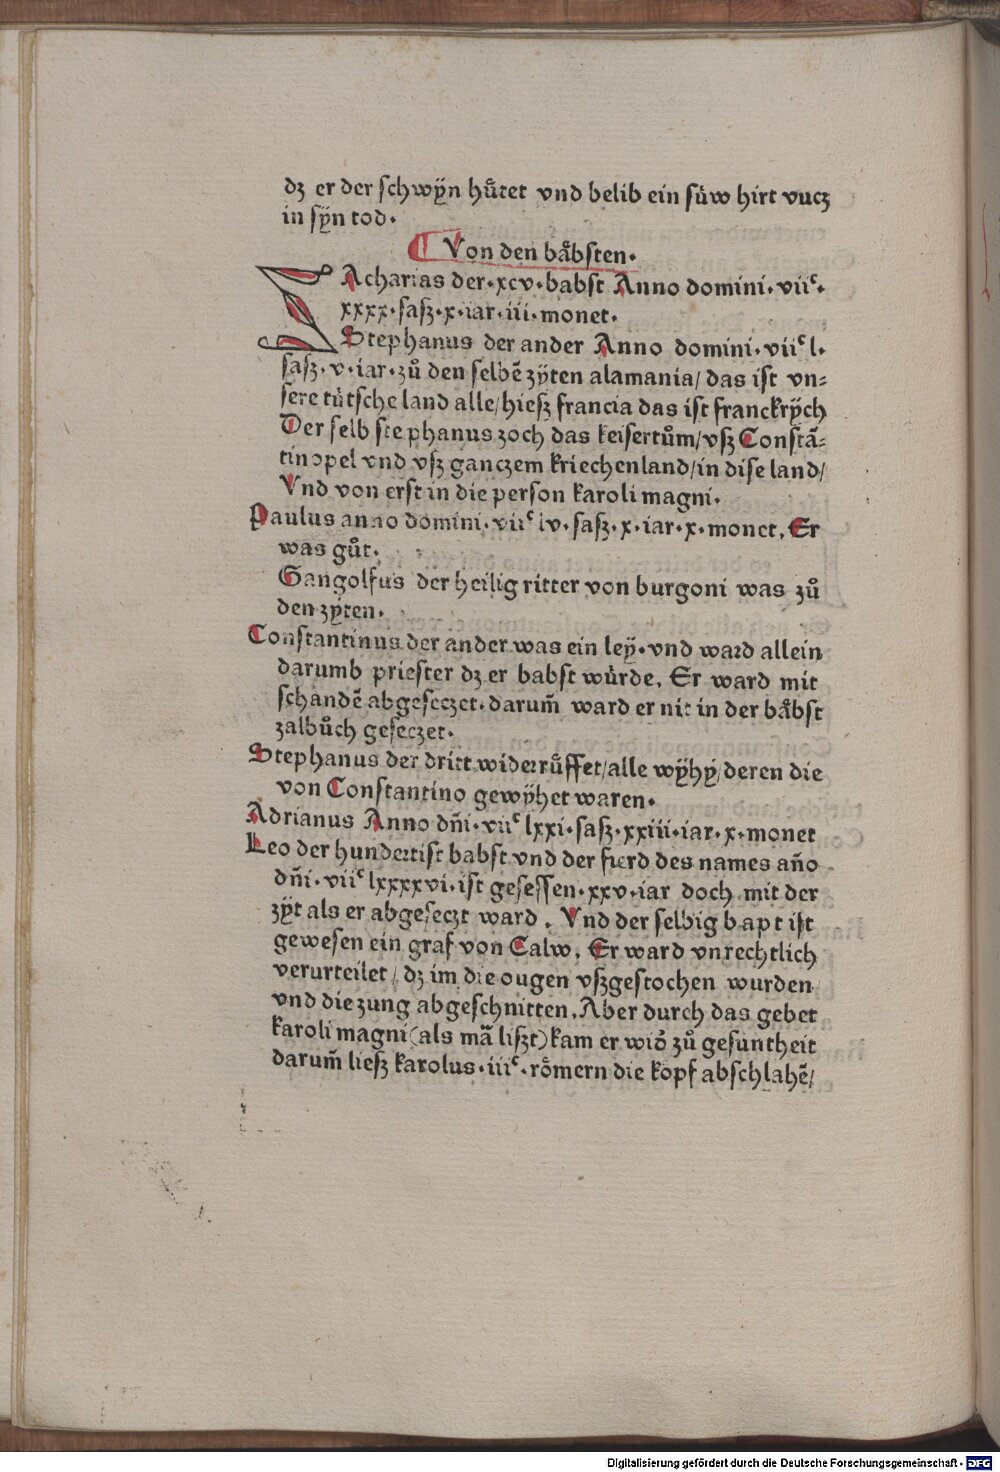 dz er der schwÿn hu̍tet vnd belib ein su̍w hirt vncz
in sÿn tod·
¶ Von den ba̍bsten·
ZAcharias der·xcv·babst Anno domini·viiᶜ·
xxxx·sasz·x·iar·iii·monet·
Stephanus der ander Anno domini·viiᶜl·
sasz·v·iar·zů den selbē zÿten alamania/das ist vn⸗
sere tu̍tsche land alle/hiesz francia das ist franckrÿch
Der selb stephanus zoch das keisertům/vsz Constā⸗
tinopel vnd vsz ganczem kriechenland/in dise land/
Vnd von erst in die person karoli magni·
Paulus anno domini·viiᶜlv·sasz·x·iar·x·monet. Er
was gůt·
Gangolfus der heilig ritter von burgoni was zů
den zÿten·
Constantinus der ander was ein leÿ·vnd ward allein
darumb priester dz er babst wu̍rde. Er ward mit
schandē abgeseczet·darum̄ ward er nit in der ba̍bst
zalbůch geseczet·
Stephanus der dritt widerru̍ffet/alle wÿhÿ/deren die
von Constantino gewÿhet waren·
Adrianus Anno dn̄i·viiᶜlxxi·sasz·xxiii·iar·x·monet
Leo der hundertist babst vnd der fierd des names an̄o
dn̄i·viiᶜlxxxxvi·ist gesessen·xxv·iar doch mit der
zÿt als er abgeseczt ward. Vnd der selbig bapt ist
gewesen ein graf von Calw. Er ward vnrechtlich
verurteilet/dz im die ougen vszgestochen wurden
vnd die zung abgeschnitten. Aber durch das gebet
karoli magni(als mā liszt)kam er wid̄ zů gesuntheit
darum̄ liesz karolus·iiiᶜ·ro̍mern die kopf abschlahē/
Digitalisierung gefördert durch die Deutsche Forschungsgemeinschaft - DFG